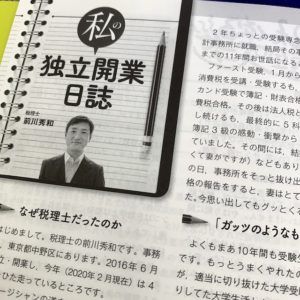 私の
独立開業
日誌
税理士
前川秀和
なぜ税理士だったのか
はじめまして。税理士の前川秀和です。事務
、東京都中野区にあります。2016年6月
立・開業し、今年（2020年2月現在）は4
ひた走っているところです。
2年ちょっとの受験専念
計事務所に就職、結局その
までの11年間お世話になる
ファースト受験、1月から
消費税を受講・受験するも、
カンド受験で簿記・財表合格
費税合格。その後は法人税と
し続けるも、最終的に5科
簿記3級の感動・衝撃から
ていました。その間には、結
くて妻ですが）などもあり
日、事務所をそっと抜け出
格の報告をすると、妻はとて
。今思い出してもグッとく
「ガッツのようなも
よくもまあ10年間も受験
す。もっとうまくやれたの
が、適当に切り抜けた大学受
りしてた大学生活